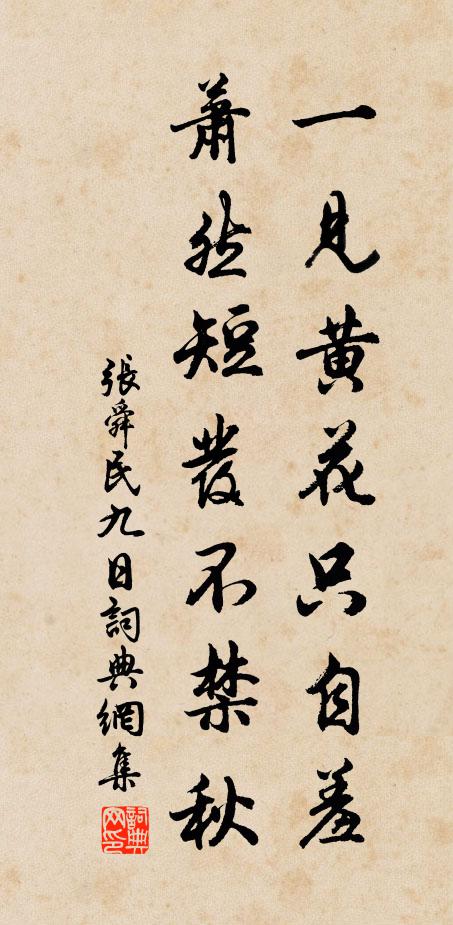 一見黄花只自羞
蕭然短發不禁秋
張舜民九日詞典網集
詞典网印